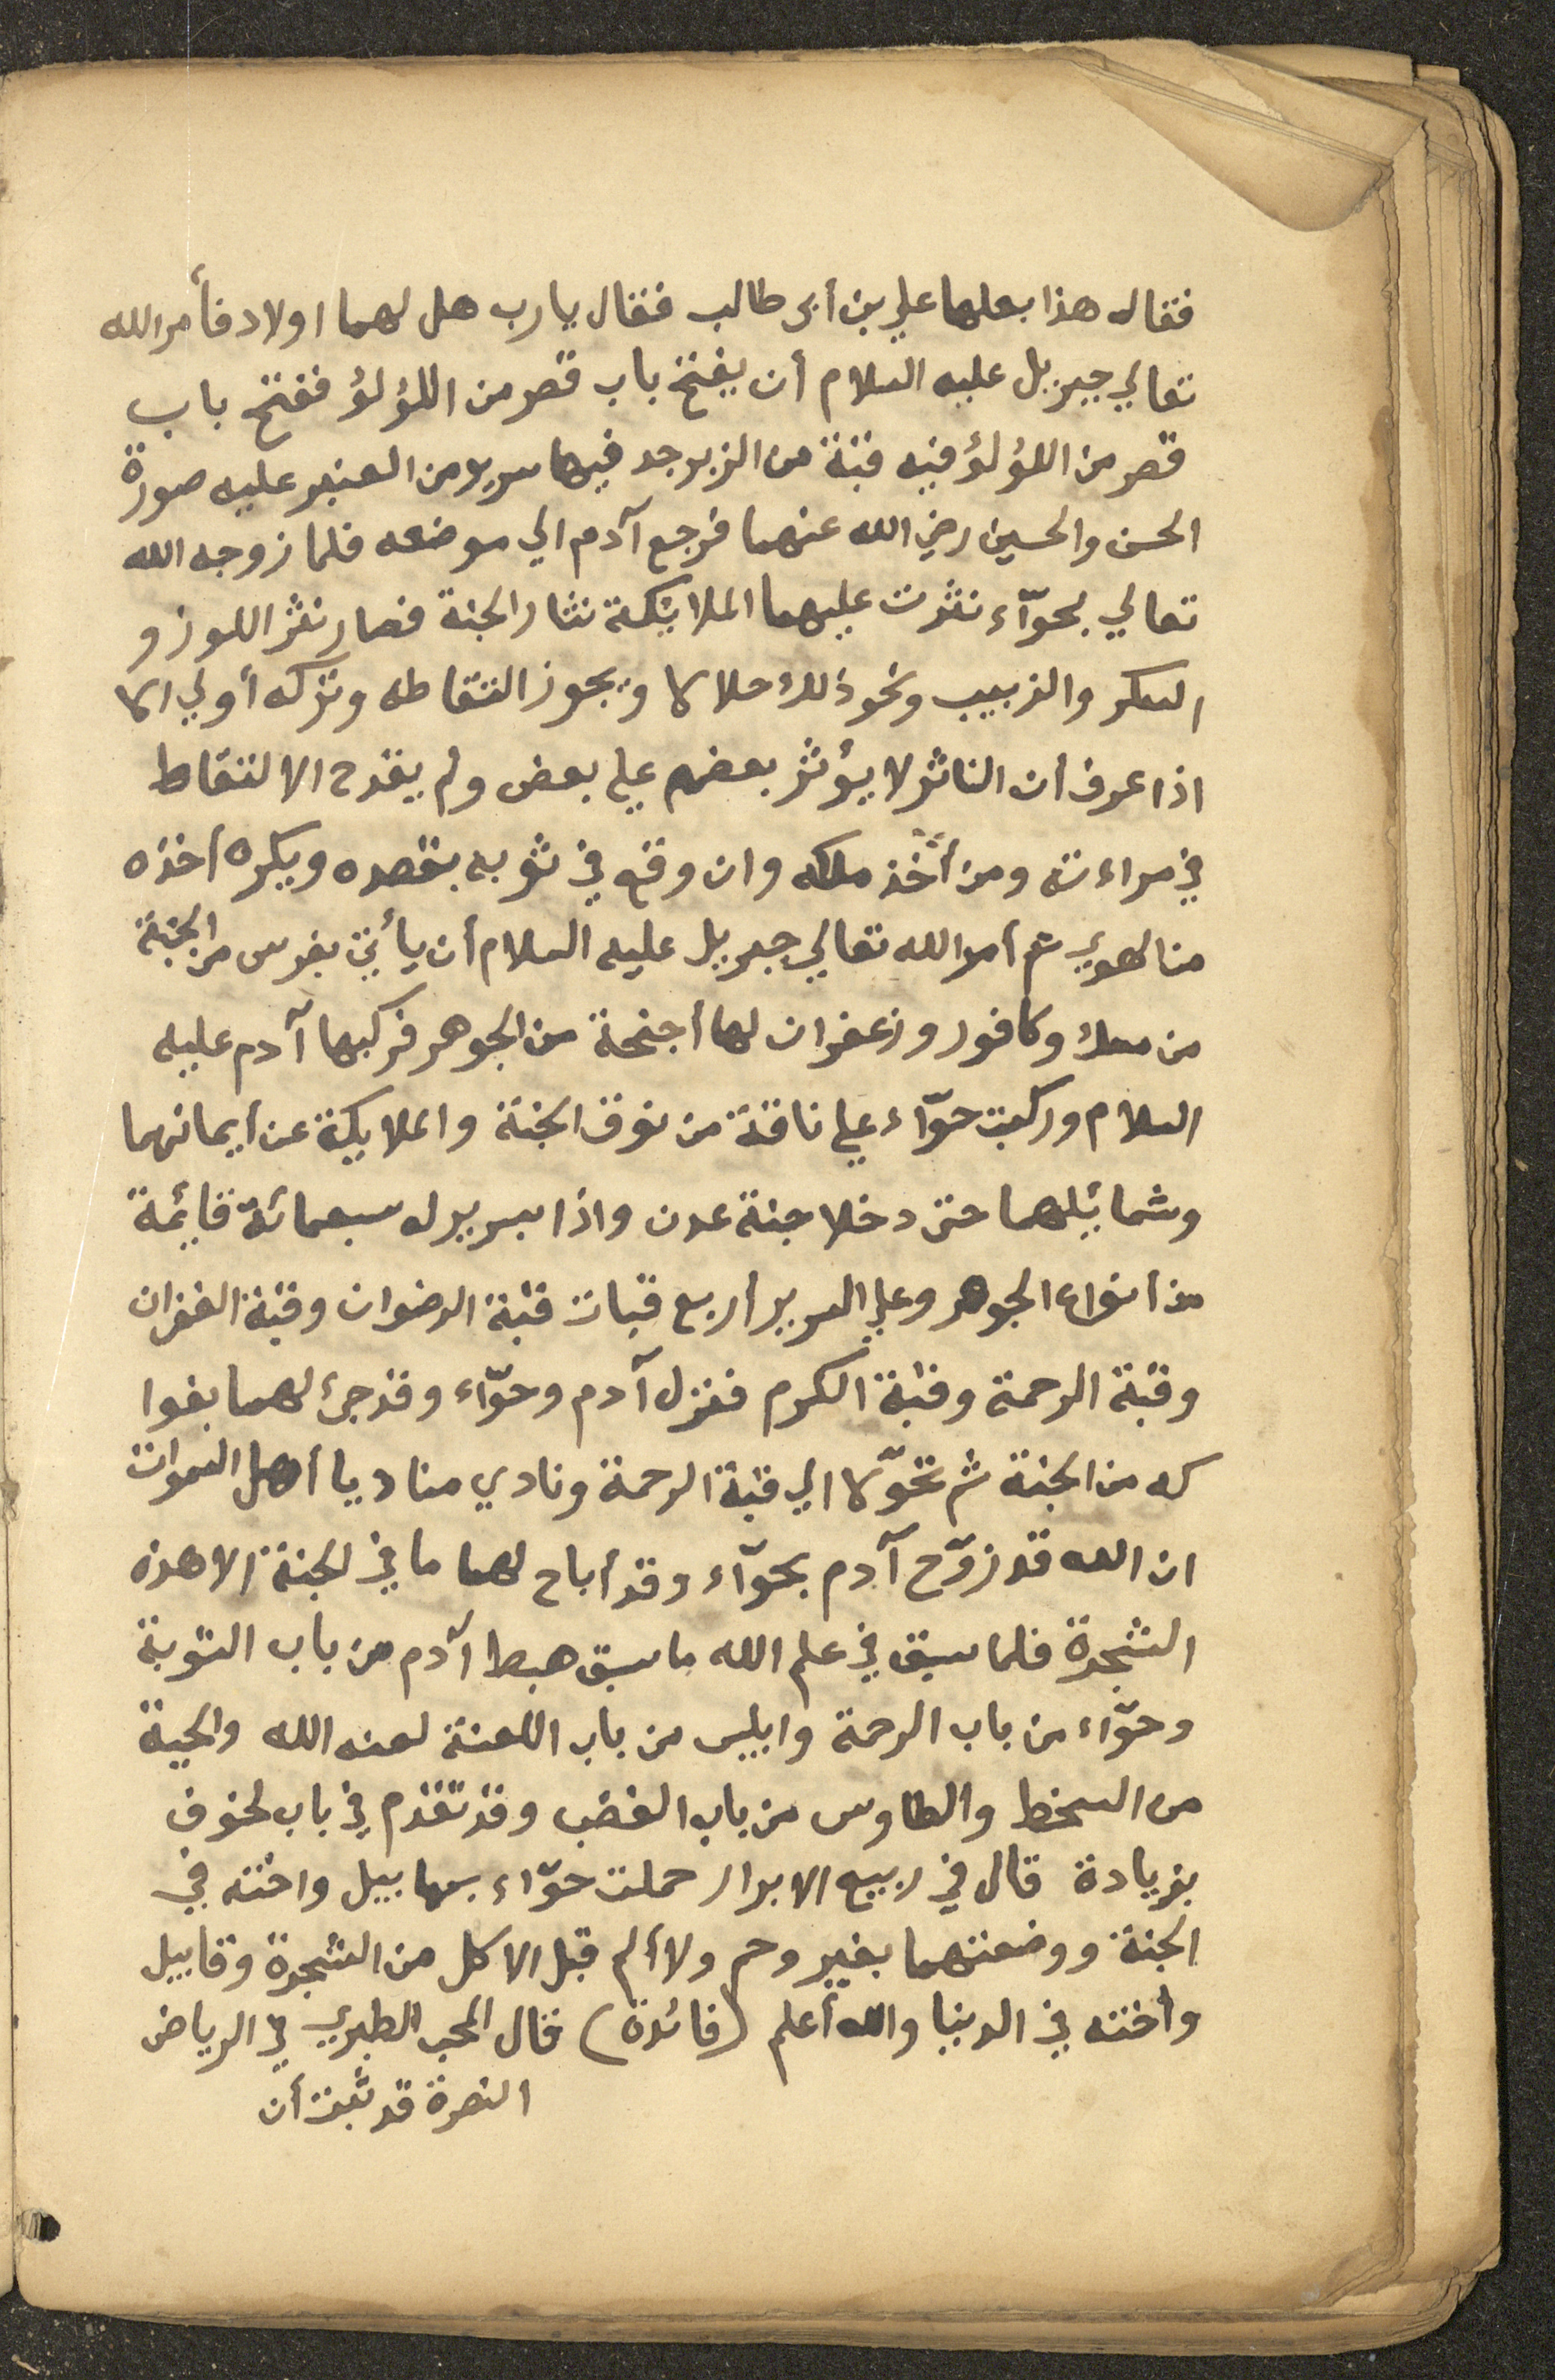 فقال هذا بعلها علي بن أبى طالب فقال يارب هل لهما اولاد فأمر الله
تعالي جبريل عليه السلام أن يفتح باب قصر من اللؤلؤ ففتح باب
قصر من اللؤلؤ فيه قبة من الزبرجد فيها سرير من العنبر عليه صورة
الحسن والحسين رضي الله عنهما فرجع آدم الي موضعه فلما زوجه الله
تعالي بحوّآء نثرت عليهما الملائكة نثار الجنة فصار نثر اللوز و
السكر والزبيب ونحو ذلك حلالا ويجوز التقاطه وتركه أولي الا
اذا عرف أن الناثر لا يؤثر بعضهم علي بعض ولم يقدح الالتقاط
في مراءته ومن أخذ ملكه وان وقع في ثوبه بقصده ويكره أخذه
من الهوي ثم أمر الله تعالي جبريل عليه السلام أن يأتي بفرس من الجنة
من مسك وكافور وزعفران لها أجنحة من الجوهر فركبها آدم عليه
السلام وركبت حوّآء علي ناقة من نوق الجنة والملايكة عن أيمانهما
وشمائلهما حتى دخلا جنة عدن واذا بسرير له سبعمائة قائمة
من أنواع الجوهر وعلي السرير أربع قبات قبة الرضوان وقبة الغفران
وقبة الرحمة وقبة الكرم فنزل آدم وحوّآء وقد جئ لهما بفوا
كه من الجنة ثم تحوّلا الي قبة الرحمة ونادي مناد يا أهل السموات
ان الله قد زوّج آدم بحوّآء وقد أباح لهما ما في لجنة الا هذه
الشجرة فلما سبق في علم الله ما سبق هبط آدم من باب التوبة
وحوّاء من باب الرحمة وابليس من باب اللعنة لعنه الله والحية
من السخط والطاوس من باب الغضب وقد تقدم في باب لخوف
بزيادة قال في ربيع الابرار حملت حوّاء بهابيل واخته في
الجنة ووضعتهما بغير وحم ولا ألم قبل الاكل من الشجرة وقابيل
وأخته في الدنيا والله أعلم (فائدة) قال المحب الطبري في الرياض
النضرة قد ثبت أن